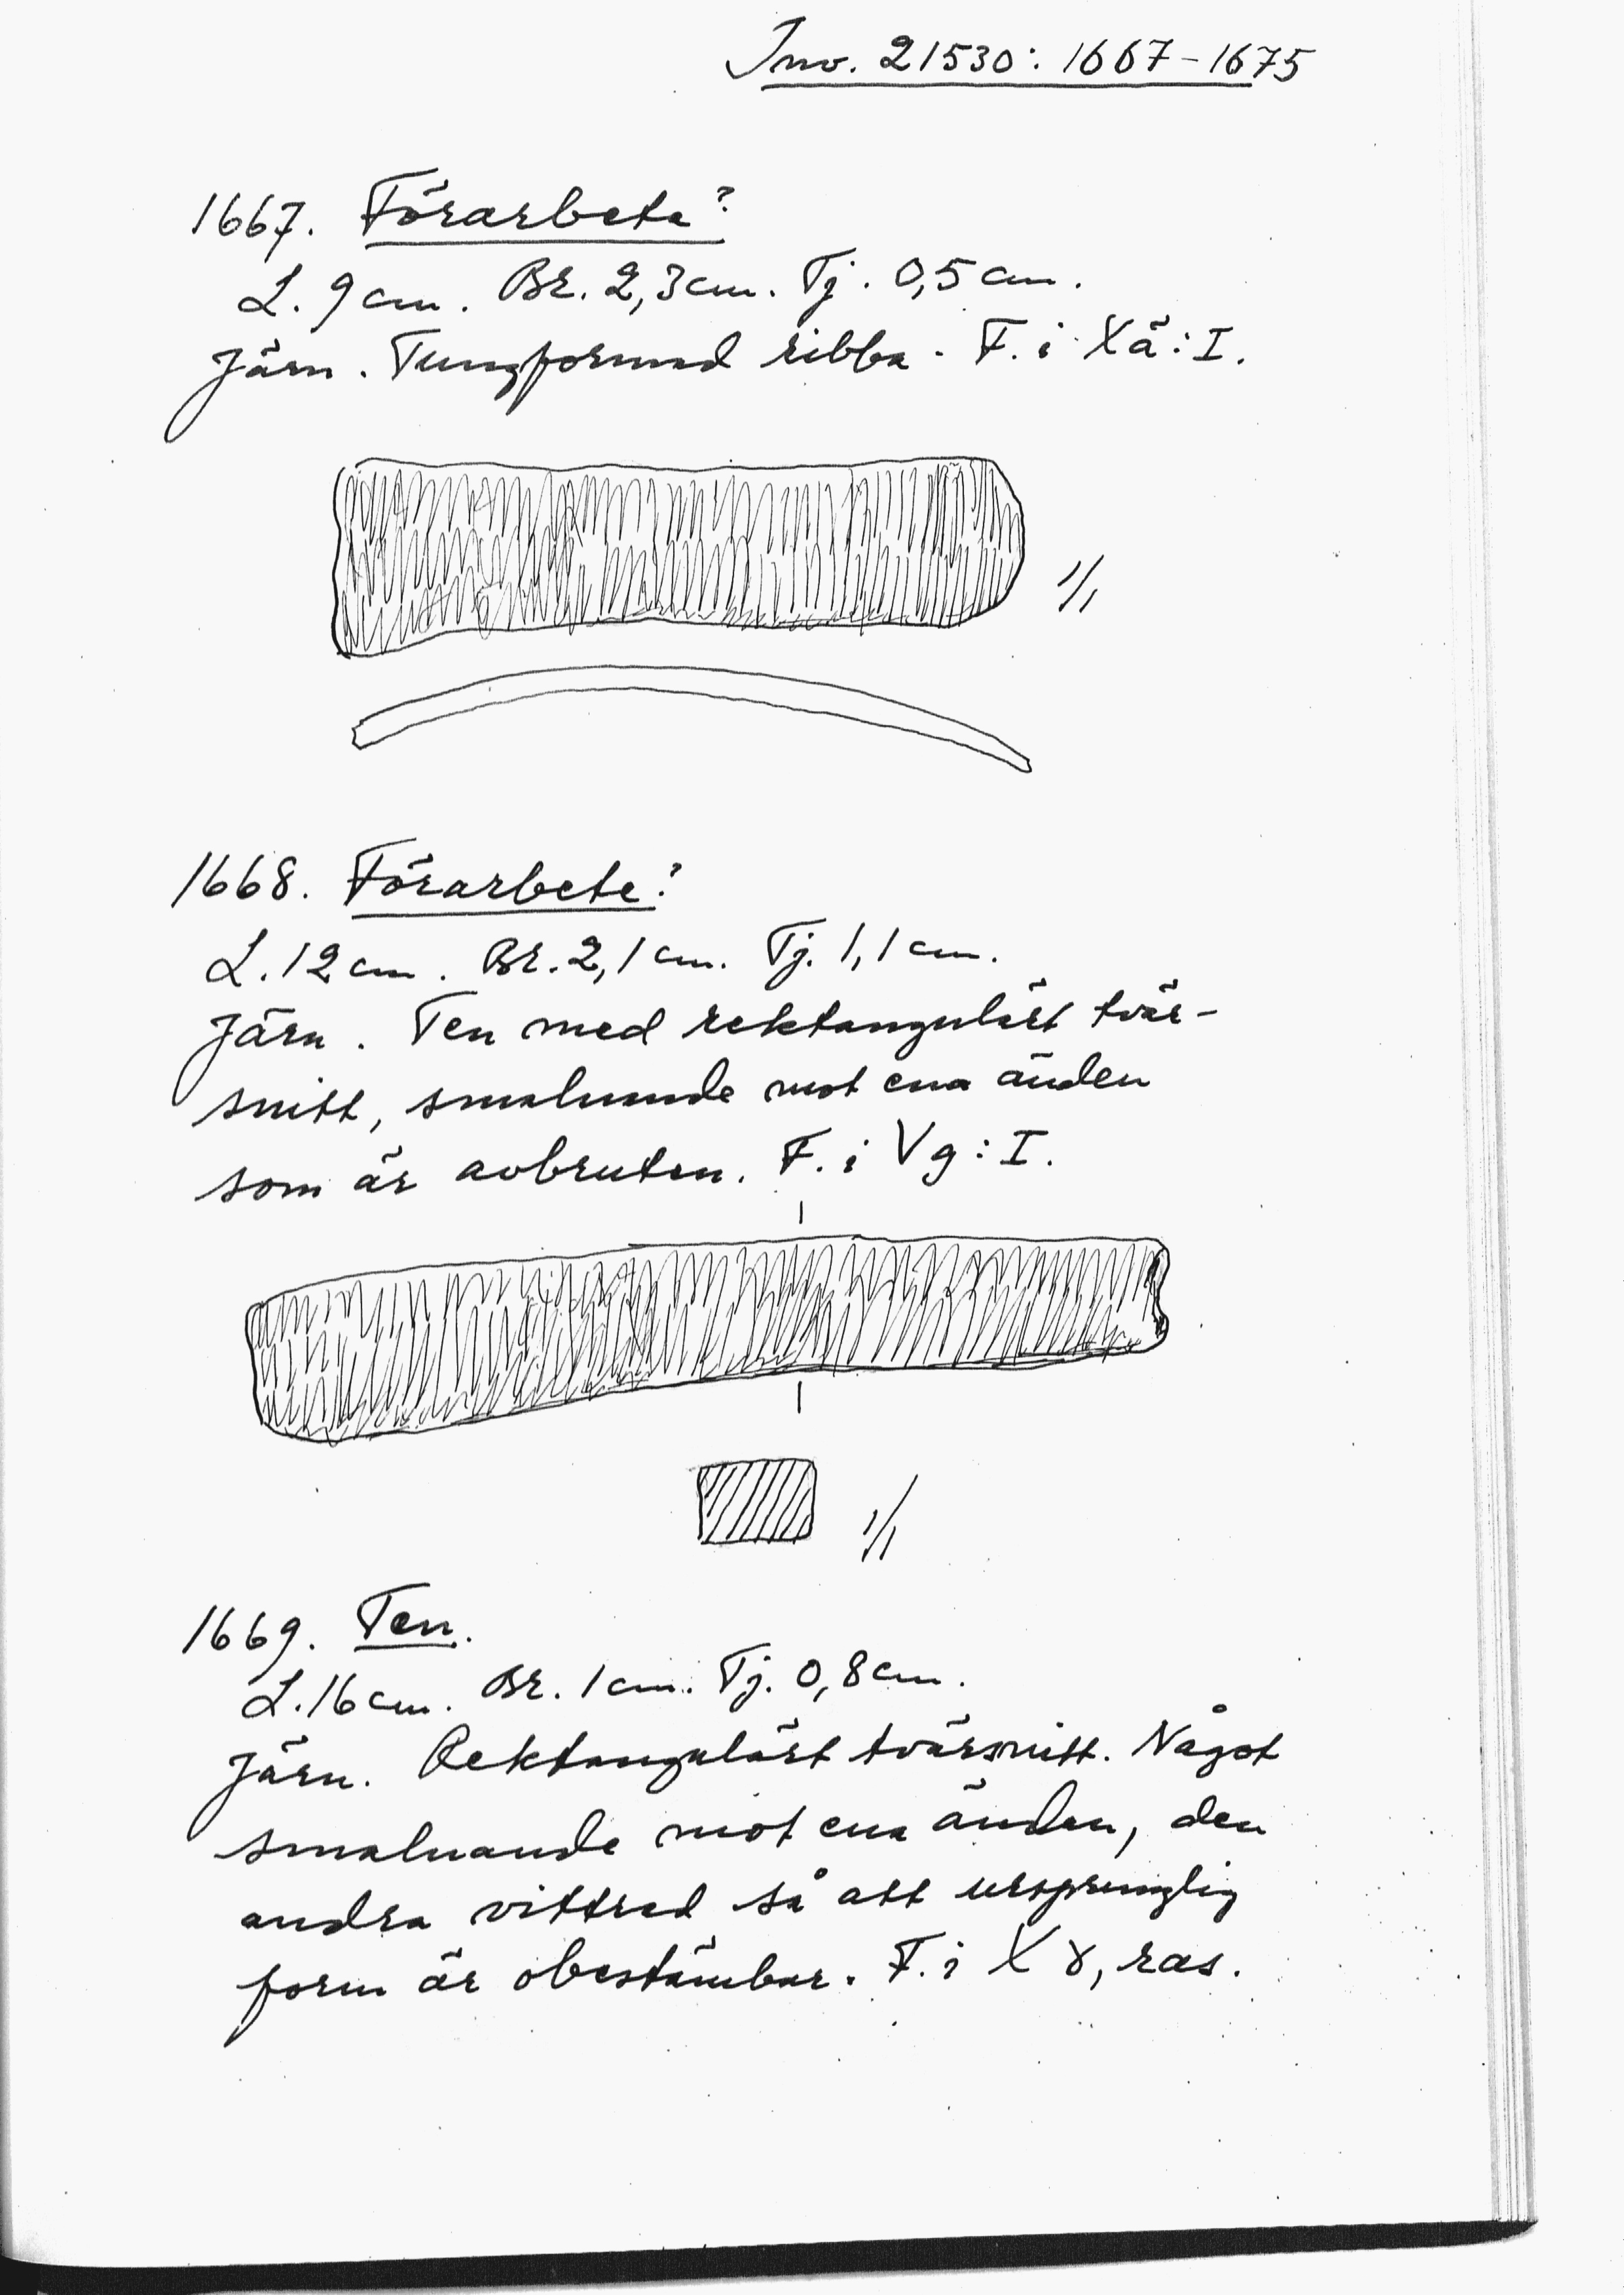 Inv. 21530: 1667-1675
1667. Förarbete?
L. 9 cm. Br. 2,3 cm. Tj. 0,5 cm.
Järn. Tungformad ribba. F. i Xä:I.
1/1
1668. Förarbete?
L. 12 cm. Br. 2,1 cm. Tj. 1,1 cm.
Järn. Ten med rektangulärt tvär-
snitt, smalnande mot ena änden
som är avbruten. F. i Vg:I.
1/1
1669. Ten.
L. 16 cm. Br. 1 cm. Tj. 0,8 cm.
Järn. Rektangulärt tvärsnitt. Något
smalnande mot ena änden, den
andra vittrad så att ursprunglig
form är obestämbar. F. i X γ, ras.